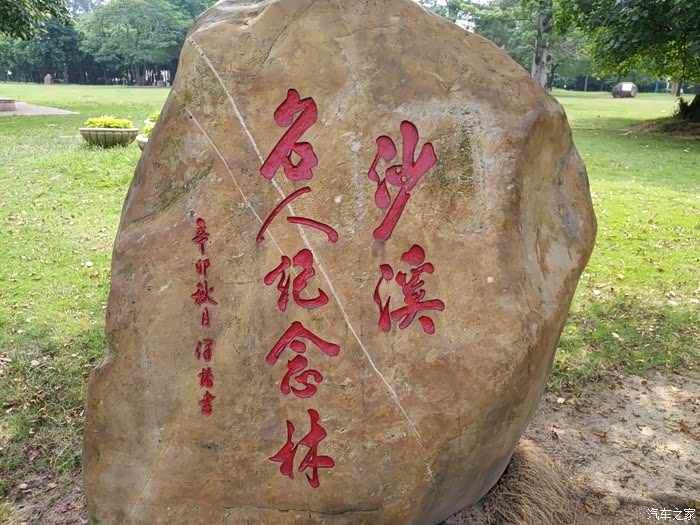 沙溪
名人纪念林
辛卯秋月
汽车之家